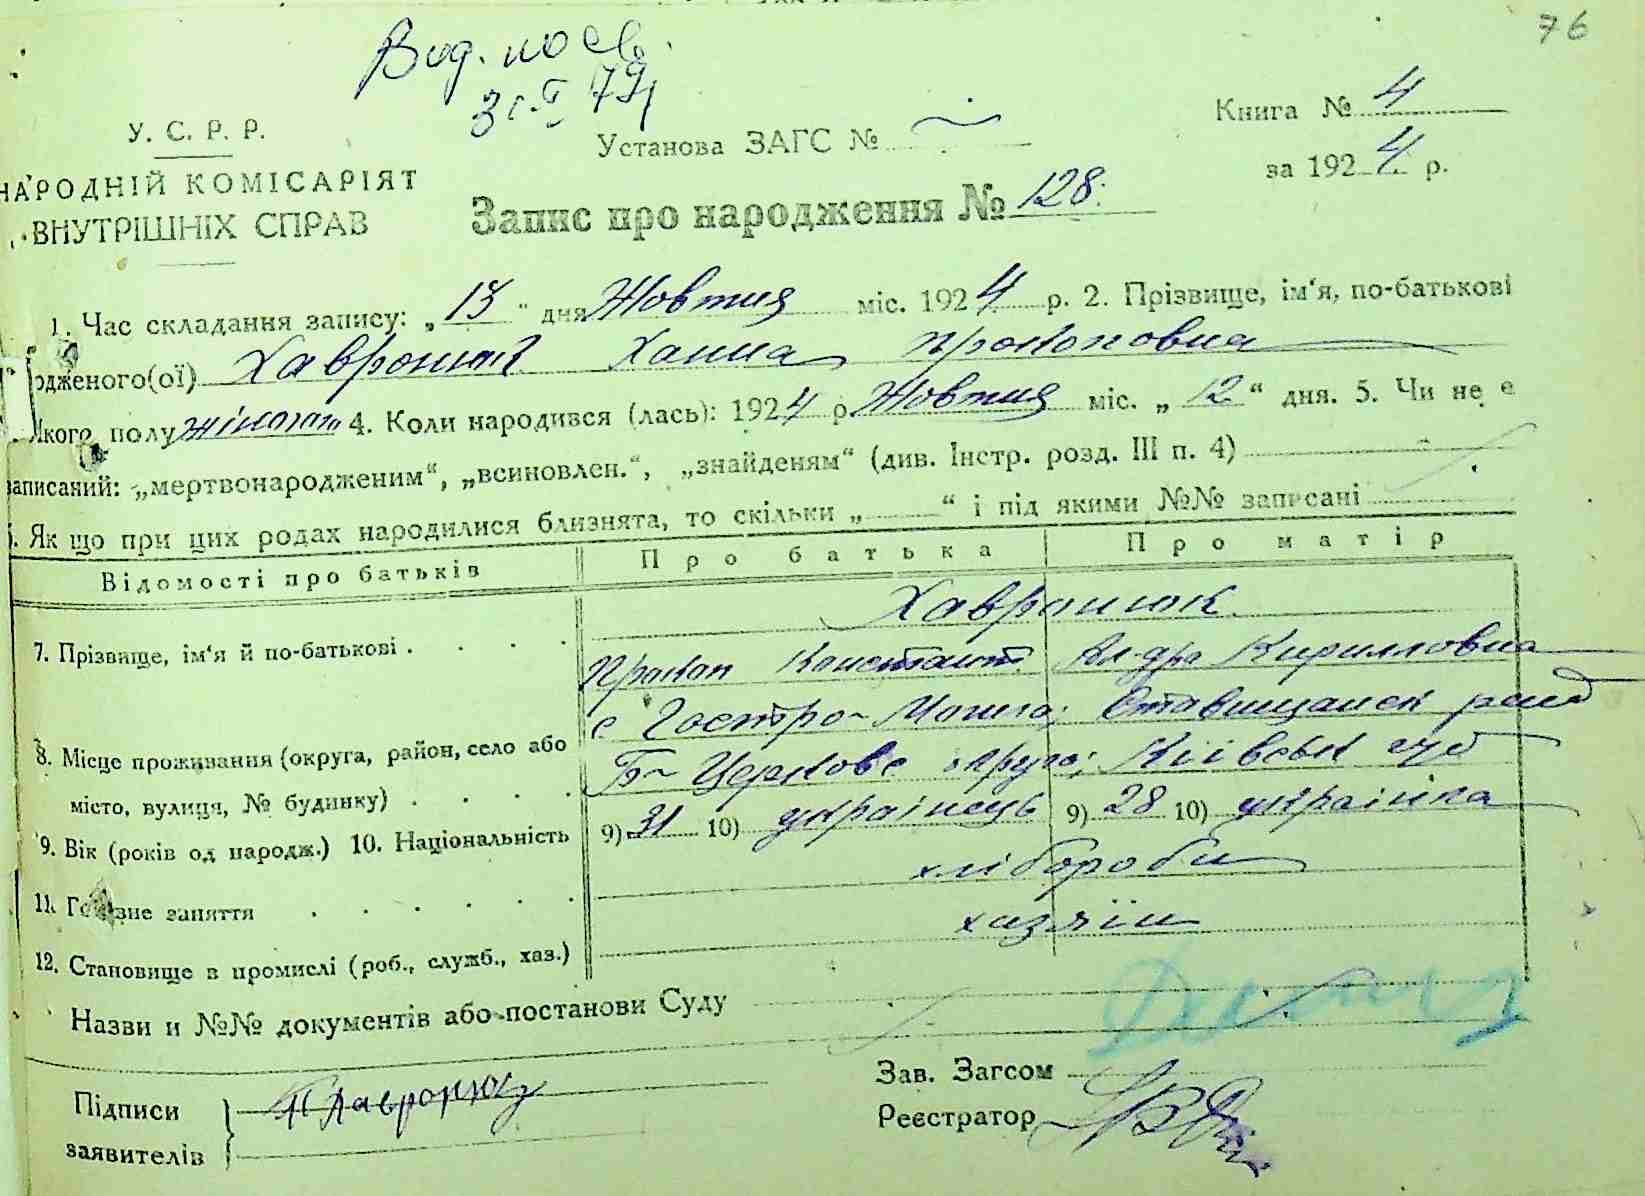 76
Вид. по св.
31.V 79
У. С. Р. Р.
НАРОДНІЙ КОМІСАРІЯТ
ВНУТРІШНІХ СПРАВ
Установа ЗАГС №
Книга № 4
за 1924 р.
Запис про народження № 128.
1. Час складання запису: „13" дня Жовтня міс. 1924 р. 2. Прізвище, ім'я, по-батькові
одженого(ої) Хавронюк Ханна Прокоповна
якого полу жіночого 4. Коли народився (лась): 1924 р. Жовтня міс. „12" дня. 5. Чи не є
записаний: „мертвонародженим", „всиновлен.", „знайденям" (див. Інстр. розд. III п. 4)
6. Як що при цих родах народилися близнята, то скільки „ " і під якими №№ записані
Відомості про батьків Про батька Про матір
Хавронюк
7. Прізвище, ім'я й по-батькові . . . . Прокоп Констант Ал-дра Кириловна
с Гостро-Могила; Ставищанск район
8. Місце проживання (округа, район, село або
місто, вулиця, № будинку) . . . . Б-Церковс округа; Київськ губ
9. Вік (років од народж.) 10. Національність 9) 31 10) українець 9) 28 10) українка
11. Головне заняття . . . . . . хлібороби
12. Становище в промислі (роб., служб., хаз.) хазяїн
Назви и №№ документів або постанови Суду
Підписи
заявителів
П Хавронюк
Зав. Загсом
Реєстратор